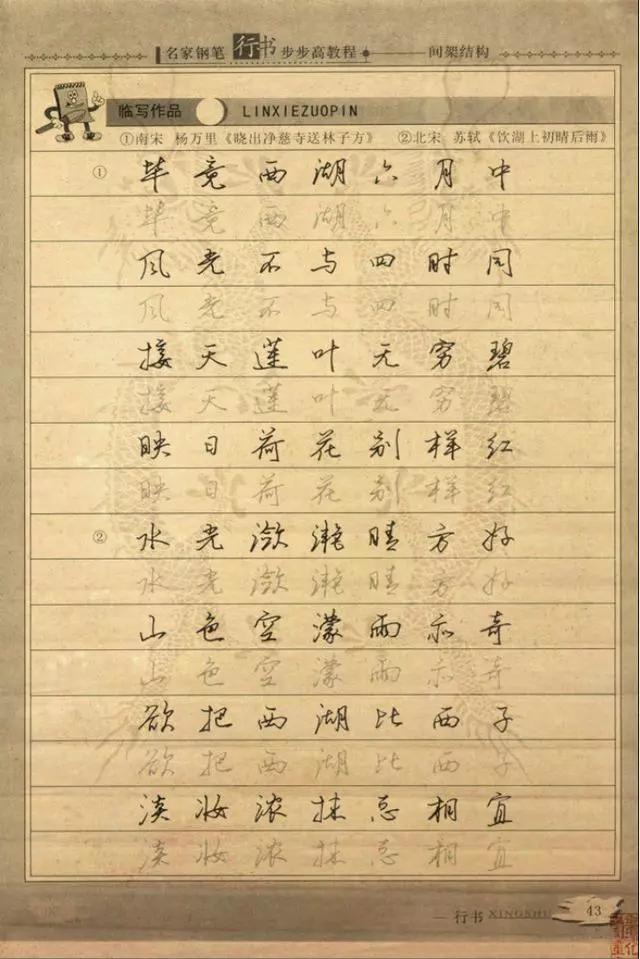 名家钢笔行书步步高教程 间架结构
临写作品 LINXIEZUOPIN
①南宋 杨万里《晓出净慈寺送林子方》 ②北宋 苏轼《饮湖上初晴后雨》
① 毕竟西湖六月中
毕竟西湖六月中
风光不与四时同
风光不与四时同
接天莲叶无穷碧
接天莲叶无穷碧
映日荷花别样红
映日荷花别样红
② 水光潋滟晴方好
水光潋滟晴方好
山色空濛雨亦奇
山色空濛雨亦奇
欲把西湖比西子
欲把西湖比西子
淡妆浓抹总相宜
淡妆浓抹总相宜
行书 XINGSHU 43